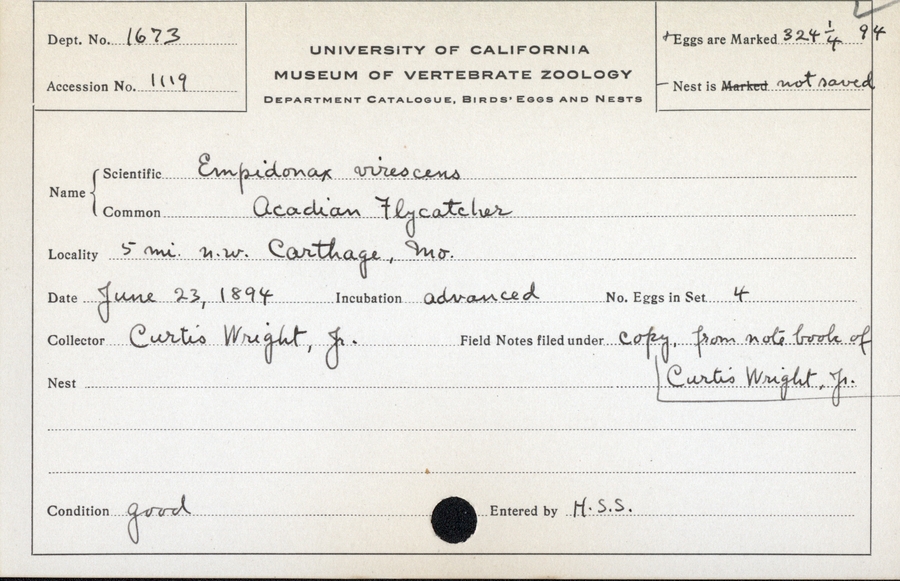 Dept. No. 1673
Accession No. 1119
UNIVERSITY OF CALIFORNIA
MUSEUM OF VERTEBRATE ZOOLOGY
DEPARTMENT CATALOGUE, BIRDS' EGGS AND NESTS
Eggs are Marked 324 1/4 94
Nest is Marked not saved
Name
Scientific Empidonax virescens
Common Acadian Flycatcher
Locality 5 mi. n.w. Carthage, Mo.
Date June 23, 1894 Incubation advanced No. Eggs in Set 4
Collector Curtis Wright, Jr. Field Notes filed under copy, from note book of
Curtis Wright, Jr.
Nest
Condition good Entered by H.S.S.